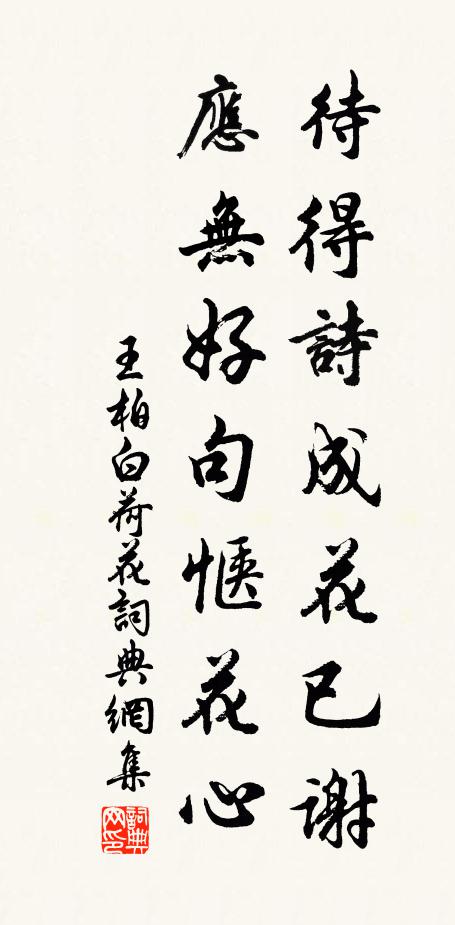 待得詩成花已謝
應無好句愜花心
王柏白荷花詞典網集
詞典网印